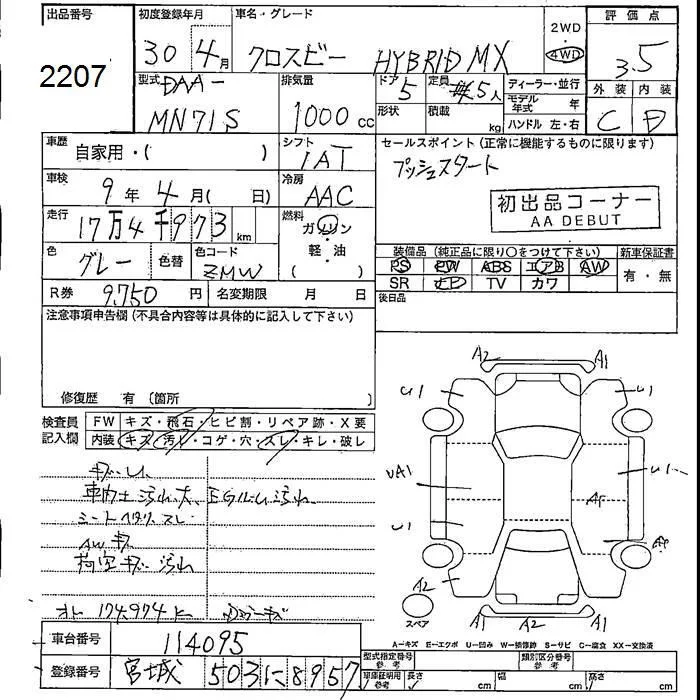 出品番号
2207
初度登録年月
30年4月
車名・グレード
クロスビー HYBRID MX
2WD
・
4WD
評価点
3.5
外装 内装
C D
型式
DAA-
MN71S
排気量
1000cc
ドア
5
定員
5人
形状
積載
kg
ディーラー・並行
モデル年式 年
ハンドル 左・右
車歴
自家用・( )
シフト
IAT
車検
9年4月( 日)
冷房
AAC
走行
17万4千973km
燃料
ガソリン
・
軽・油
( )
色
グレー
色替
色コード
ZMW
R券 9,750円
名変期限 月 日
セールスポイント(正常に機能するものに限ります)
プッシュスタート
初出品コーナー
AA DEBUT
装備品(純正品に限り○をつけて下さい)
新車保証書
PS PW ABS エアB AW
有・無
SR ナビ TV カワ
後日品
注意事項申告欄(不具合内容等は具体的に記入して下さい)
修復歴 有(箇所
検査員記入欄
FW キズ・飛石・ヒビ割・リペア跡・X要
内装 キズ・汚れ・コゲ・穴・スレ・キレ・破レ
車内土汚れ大
シートヘタリ スレ
AWキズ
荷室キズ 汚れ
オド 174,974
車台番号 114095
登録番号 宮城 503 に 8957
A2 A1
U1 U1
UA1 U1
U1
A2
A1 A2 A1
スペア
A=キズ E=エクボ U=凹み W=補修跡 S=サビ C=腐食 XX=交換済
型式指定番号
参考
類別区分番号
参考
車庫証明用
参考
長さ cm
幅 cm
高さ cm